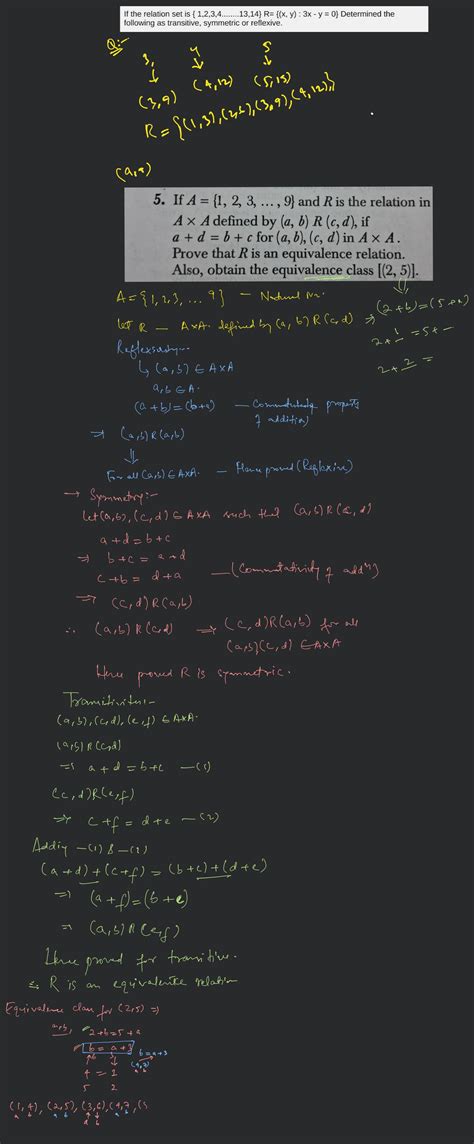 If the relation set is { 1,2,3,4........13,14} R= {(x, y) : 3x - y = 0} Determined the
following as transitive, symmetric or reflexive.
Q:-
3, 4 5
(3,9) (4,12) (5,15)
R = {(1,3),(2,6),(3,9),(4,12)}
5. If A = {1, 2, 3, ..., 9} and R is the relation in
A × A defined by (a, b) R (c, d), if
a + d = b + c for (a, b), (c, d) in A × A.
Prove that R is an equivalence relation.
Also, obtain the equivalence class [(2, 5)].
A = {1,2,3, ... 9} — Natural no.
let R — A×A. defined by (a, b) R (c, d) ⇒ (2+b)=(5+a)
2+ 1 = 5+ –
2+ 2 =
↳ (a,b) ∈ A×A
a,b ∈ A.
(a+b)=(b+a) — Commutativity property of addition)
⇒ (a,b) R (a,b)
For all (a,b) ∈ A×A. — Hence proved (Reflexive)
→ Symmetry:-
let (a,b), (c,d) ∈ A×A such that (a,b) R (c,d)
a+d = b+c
⇒ b+c = a+d
c+b = d+a — (Commutativity of addn)
⇒ (c,d) R (a,b)
∴ (a,b) R (c,d) ⇒ (c,d) R (a,b) for all
(a,b)(c,d) ∈ A×A
Hence proved R is symmetric.
(a,b),(c,d),(e,f) ∈ A×A.
(a,b) R (c,d)
⇒ a+d = b+c —(1)
(c,d) R (e,f)
⇒ c+f = d+e —(2)
Adding —(1) & —(2)
(a+d)+(c+f) = (b+c)+(d+e)
⇒ (a+f)=(b+e)
⇒ (a,b) R (e,f)
Hence proved for transitive.
R is an equivalence relation
Equivalence class for (2,5) ⇒
a,b, 2+b=5+a
b = a+3 b=a+3
4 = 1 (4,7)
5 2
(1,4), (2,5), (3,6), (4,7), (5
a b a b a b a b